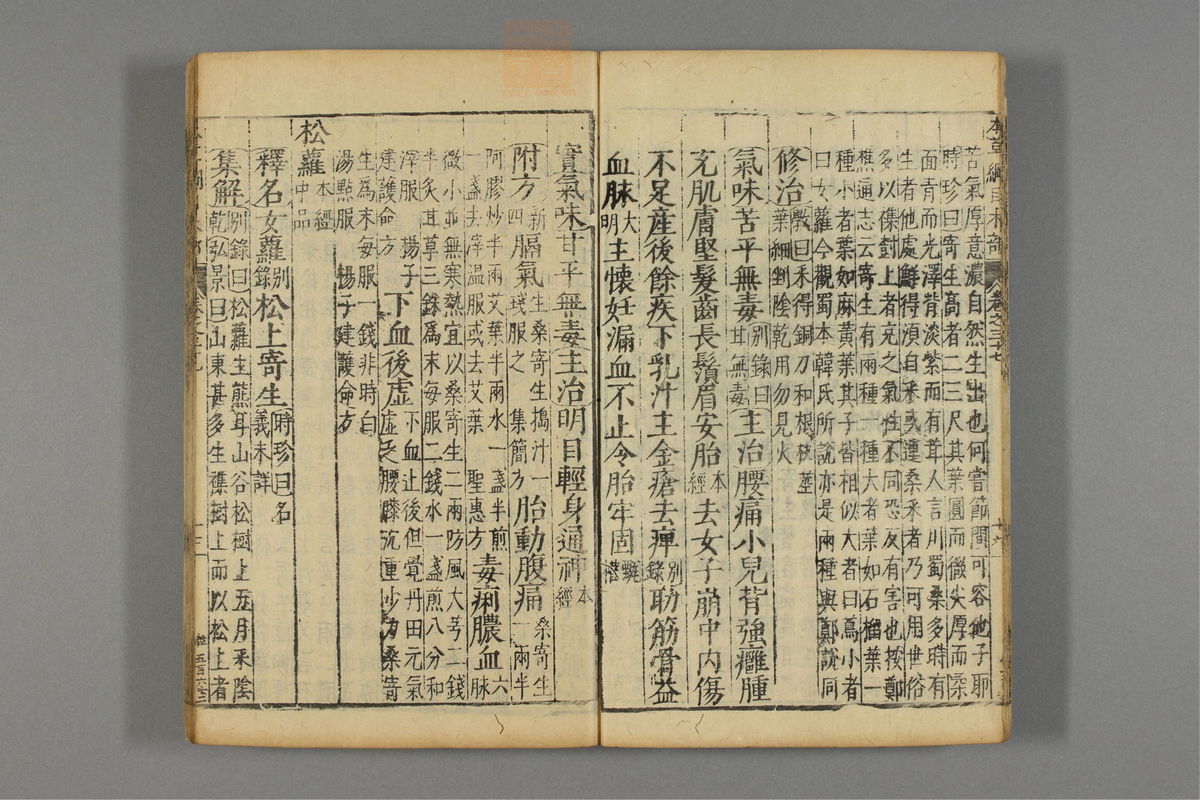 本草綱目木部 卷之三十七 十六
苦氣厚意濃自然生出也何嘗節間可容他子耶
時珍曰寄生高者二三尺其葉圓而微尖厚而柔
面青而光澤背淡紫而有茸人言川蜀桑多時有
生者他處鮮得須自采或連桑采者乃可用世俗
多以雜樹上者充之氣性不同恐反有害也按鄭
樵通志云寄生有兩種一種大者葉如石榴葉一
種小者葉如麻黃葉其子皆相似大者曰蔦小者
曰女蘿今觀蜀本韓氏所說亦是兩種與鄭說同
修治斆曰采得銅刀和根枝莖葉細剉陰乾用勿見火
氣味苦平無毒別錄曰甘無毒主治腰痛小兒背強癰腫
充肌膚堅髮齒長鬚眉安胎本經去女子崩中內傷
不足產後餘疾下乳汁主金瘡去痺別錄助筋骨益
血脉大明主懷妊漏血不止令胎牢固甄權
實氣味甘平無毒主治明目輕身通神本經
附方新四膈氣生桑寄生搗汁一盞服之集簡方胎動腹痛桑寄生一兩半
阿膠炒半兩艾葉半兩水一盞半煎
一盞去滓溫服或去艾葉 聖惠方毒痢膿血六脉
微小並無寒熱宜以桑寄生二兩防風大芎二錢
半炙甘草三銖為末每服二錢水一盞煎八分和
滓服 楊子建護命方下血後虛下血止後但覺丹田元氣虛乏腰膝沉重少力桑寄
生為末每服一錢非時白湯點服 楊子建護命方
松蘿本經中品
釋名女蘿別錄松上寄生時珍曰名義未詳
集解別錄曰松蘿生熊耳山谷松樹上五月采陰乾弘景曰山東甚多生雜樹上而以松上者